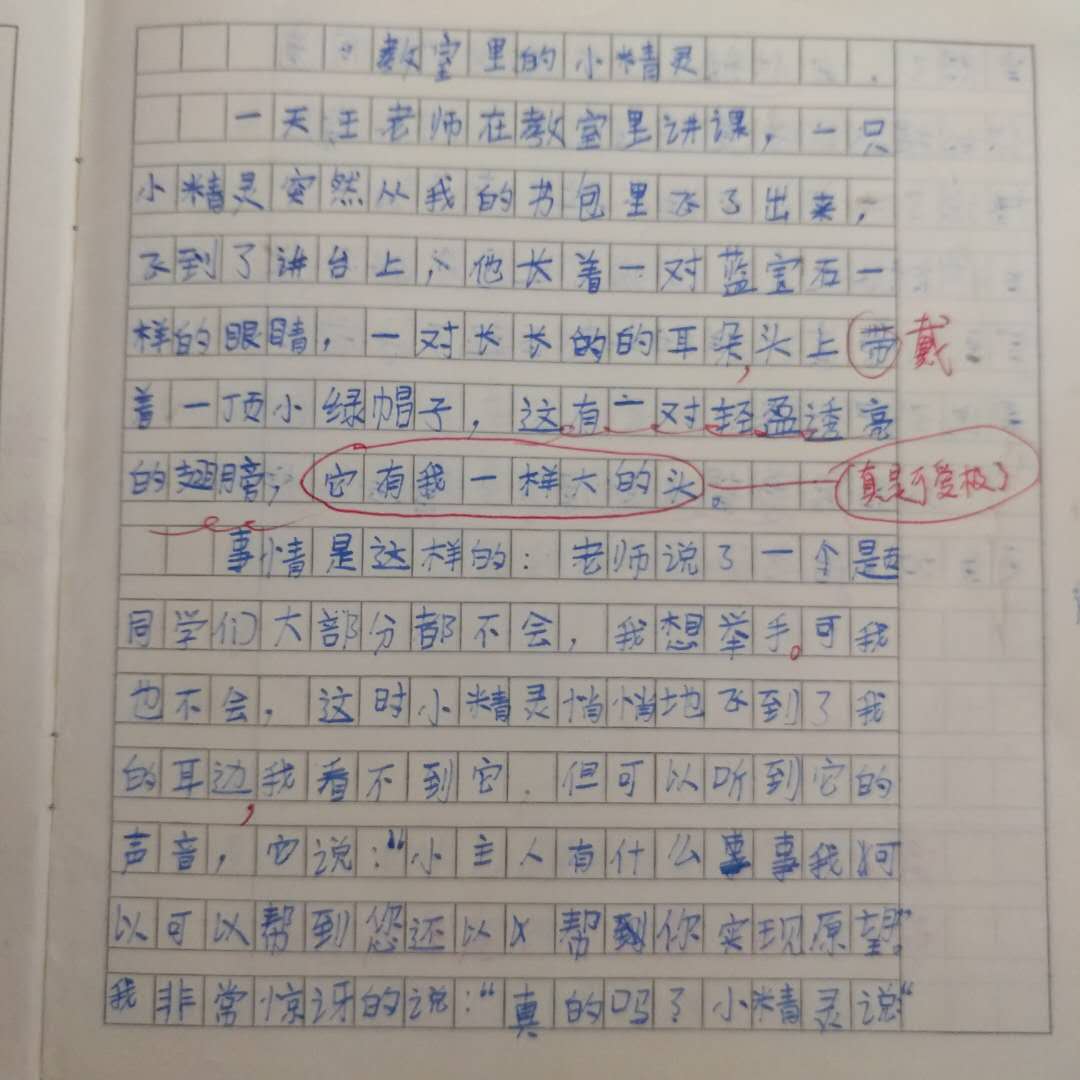 教室里的小精灵
一天王老师在教室里讲课，一只
小精灵突然从我的书包里飞了出来，
飞到了讲台上，他长着一对蓝宝石一
样的眼睛，一对长长的的耳朵，头上带 戴
着一顶小绿帽子，这有一对轻盈透亮
的翅膀，它有我一样大的头。 真是可爱极了
事情是这样的：老师说了一个题
同学们大部分都不会，我想举手。可我
也不会，这时小精灵悄悄地飞到了我
的耳边，我看不到它．但可以听到它的
声音，它说：“小主人有什么事事我可
以可以帮到您还以 帮到你实现原望。”
我非常惊讶的说：“真的吗？小精灵说“